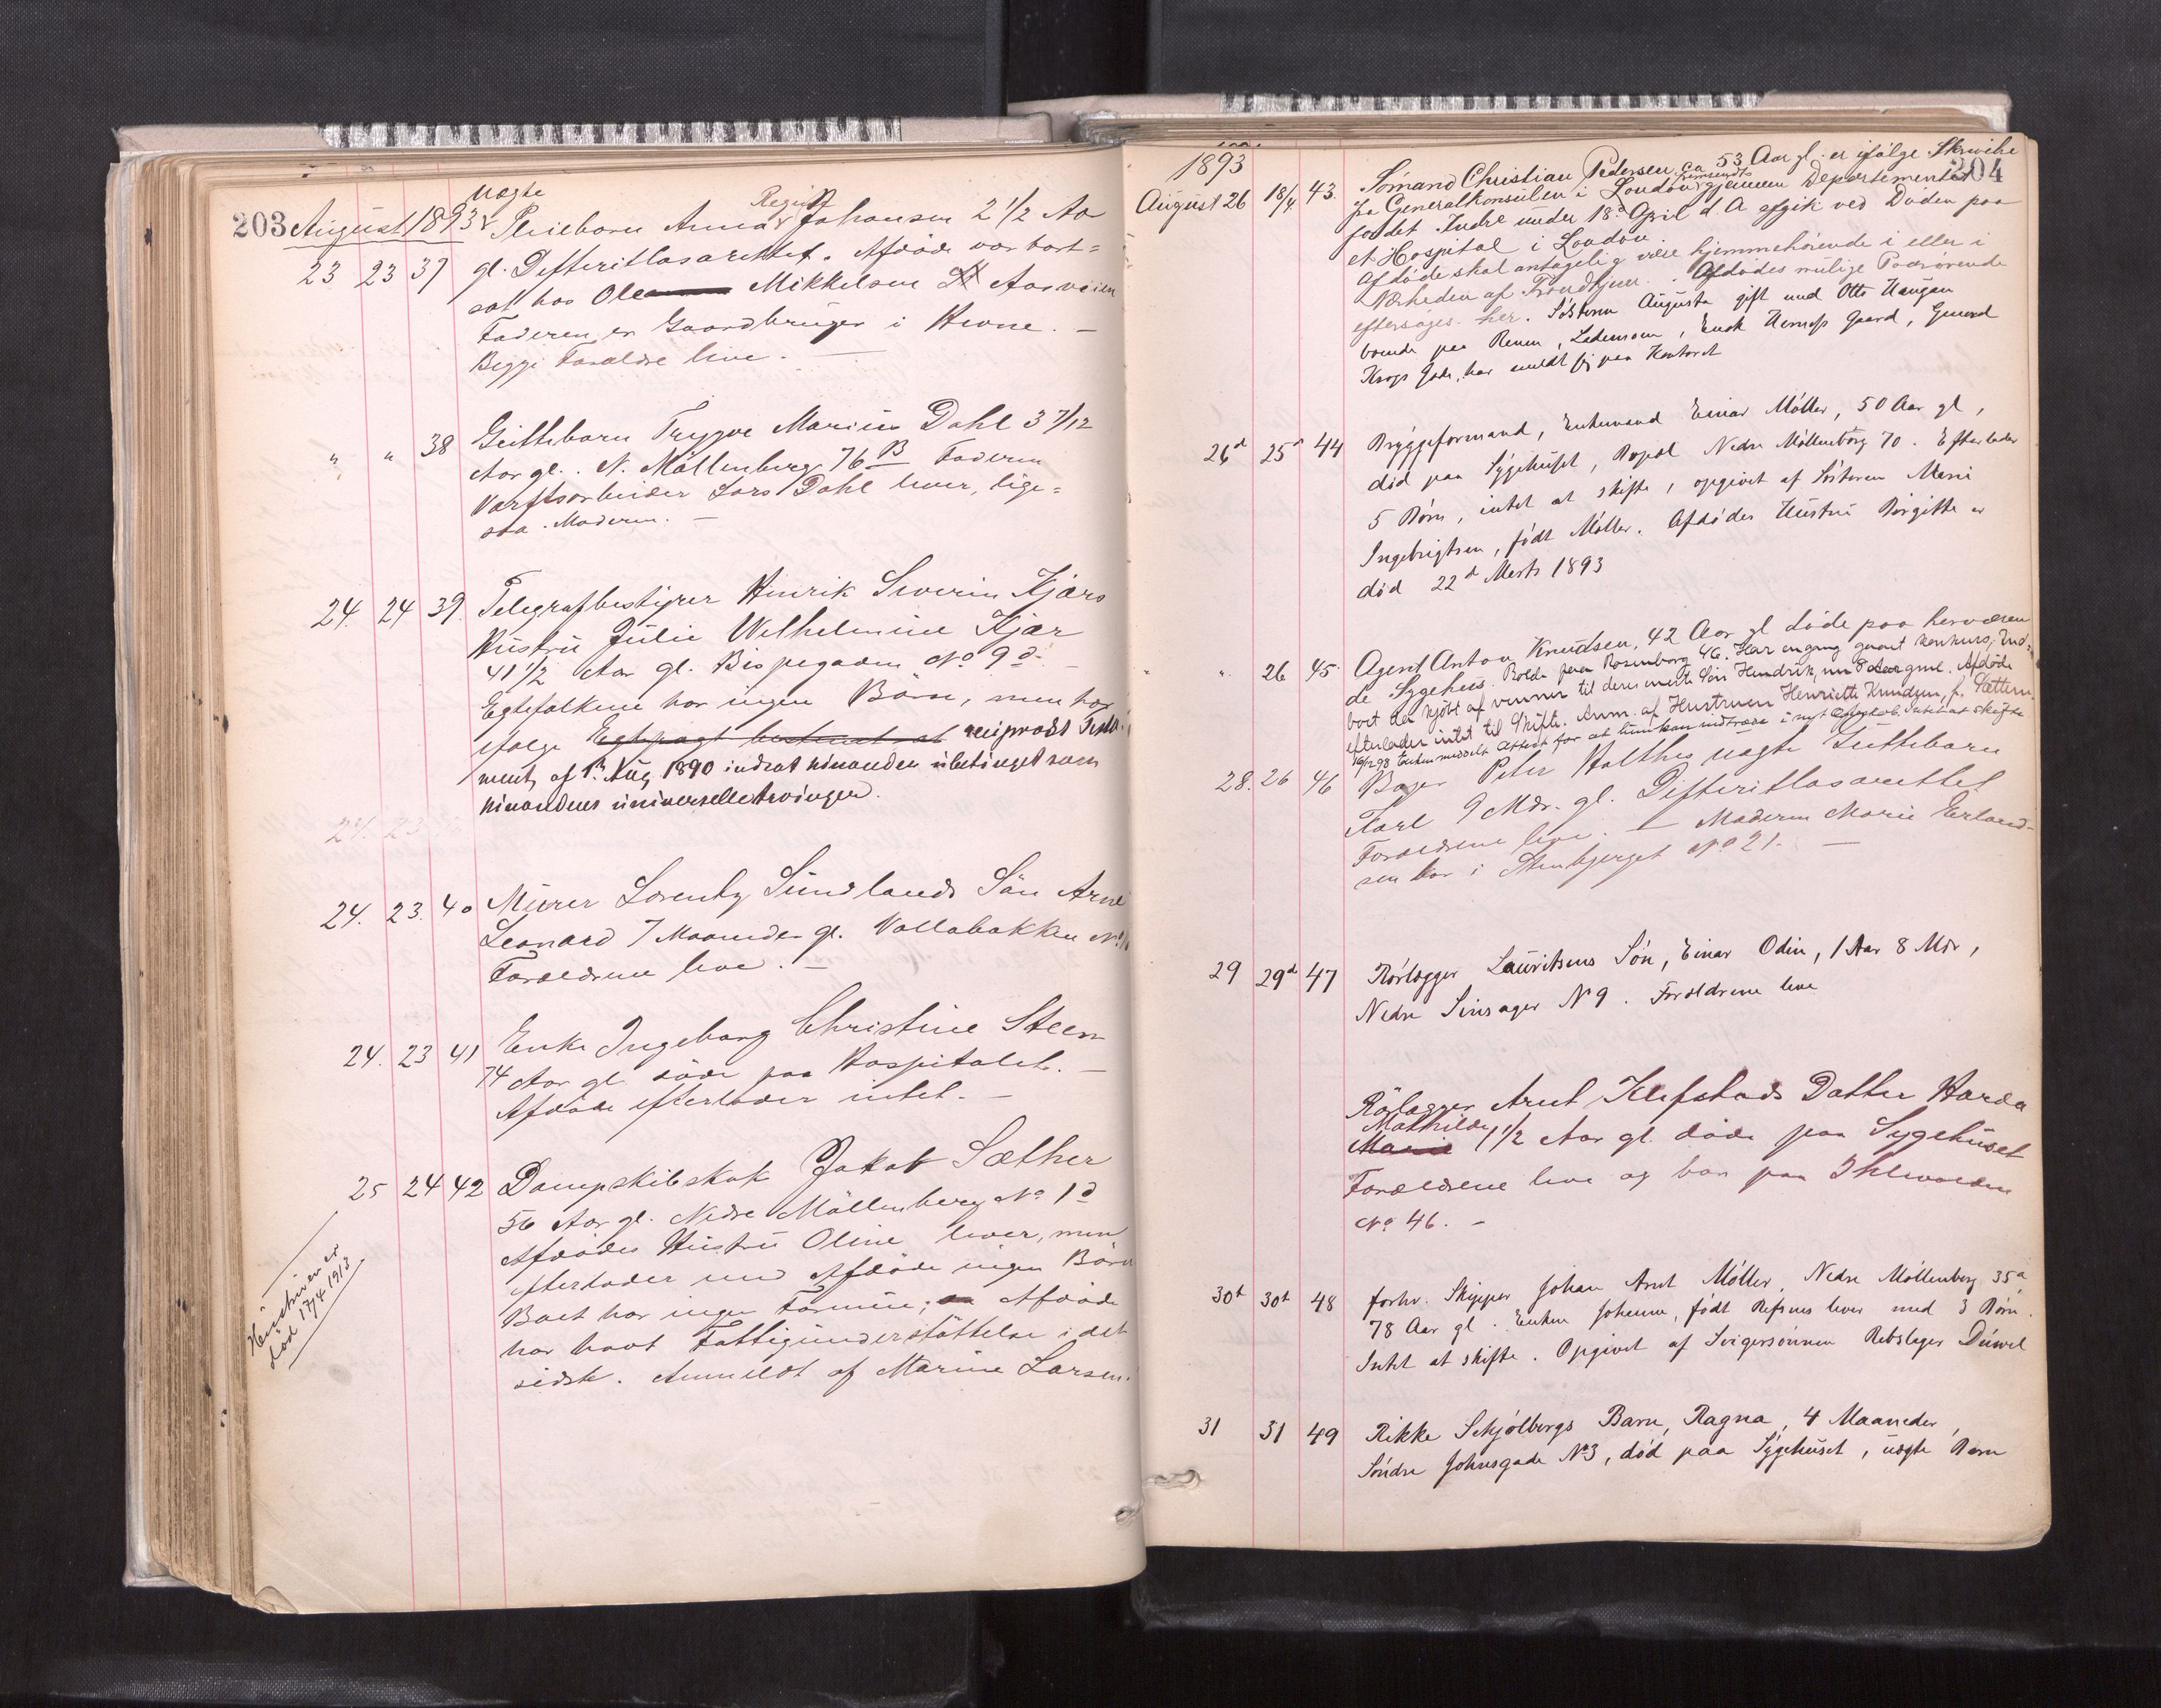 203 August 1893
uægte
Pleiebarn Anna Regine Johansen 2 1/2 Aar
23 23 37 gl. Defteritlasarettet. Afdøde var bort=
sat hos Ole Mikkelsen Aasveien
Faderen er Gaardbruger i Hevne. —
Begge Forældre leve. —
" " 38 Guttebarn Trygve Marius Dahl 3 7/12
Aar gl. N. Möllenberg 76 B Faderen
Værftsarbeider Lars Dahl lever, lige=
saa Moderen. —
24. 24 39. Telegrafbestyrer Henrik Severin Kjærs
Hustru Julie Wilhelmine Kjær
41 1/2 Aar gl. Bispegaden No 9 d. —
Egtefolkene har ingen Börn, men har
ifølge Egtepagt bestemt at reciprokt Testa-
ment af 1ste Aug 1890 indsat hinanden ubetinget som
hinandens universelle Arvinger.
24. 23
24. 23. 40 Murer Lorentz Sundlands Sön Arne
Leonard 7 Maaneder gl. Vollabakken No
Forældrene leve. —
24. 23 41 Enke Ingeborg Christine Steen
74 Aar gl. døde paa Hospitalet. —
Afdøde efterlader intet. —
25 24 42 Dampskibskok Jakob Sæther
56 Aar gl. Nedre Möllenberg No 1 d
Afdödes Hustru Oline lever, men
efterlader med Afdöde ingen Börn
Boet har ingen Formue; Afdöde
har havt Fattigunderstöttelse i det
sidste. Anmeldt af Marine Larsen.
Hustruen er
död 17/4 1913
204
1893
August 26 18/4 43. Sömand Christian Pedersen ca 53 Aar gl. er ifölge Skrivelse
fra Generalkonsulen i London fremsendt gjennem Departementet
for det Indre under 18d April d. A afgik ved Döden paa
et Hospital i London
Afdöde skal antagelig være hjemmehörende i eller i
Nærheden af Trondhjem. Afdödes mulige Paarörende
eftersöges her. Sösteren Augusta gift med Otto Haugan
boende paa Renen, Lademoen, Enck Gaard, General
Krogs Gade, har meldt sig paa Kontoret
26d 25d 44 Bryggeformand, Enkemand Einar Möller, 50 Aar gl,
död paa Sygehuset, Bopæl Nedre Möllenberg 70. Efterlader
5 Börn, intet at skifte, opgivet af Sösteren Marie
Ingebrigtsen, född Möller. Afdödes Hustru Birgitte er
död 22d Marts 1893
" 26 45. Agent Anton Knudsen, 42 Aar gl döde paa herværen
de Sygehus. Boede paa Rosenborg 46. Har engang gaaet konkurs, Ind=
boet da kjöbt af venner til deres eneste Sön Hendrik, nu 8 Aar gml. Afdöde
efterlader intet til Skifte. Anm. af Hustruen Henriette Knudsen, f. Sættem.
Enken meddelt Attest for at hun kan indtræde i nyt Ægteskab. Intet at skifte
28. 26 46 Bager Peter Holthes uægte Guttebarn
Karl 9 Mdr. gl. Defteritlasarettet
Forældrene leve. — Moderen Marie Erland-
sen bor i Stenbjerget No 21. —
29 29d 47 Rörlægger Lauritsens Sön, Einar Odin, 1 Aar 8 Mdr,
Nedre Sinsager N 9. Forældrene leve
Rörlægger Arnt Klefstads Datter Harda
Mathilde
Marie 1 1/2 Aar gl. döde paa Sygehuset
Forældrene leve og bor paa Ihlevolden
No 46. —
30t 30t 48 forhv. Skipper Johan Arnt Möller, Nedre Möllenberg 35a
78 Aar gl. Enken Johanne, född Refsnes lever med 3 Börn.
Intet at skifte. Opgivet af Svigersönnen Rebslager Düwel
31 31 49 Rikke Schjölbergs Barn, Ragna, 4 Maaneder,
Söndre Johnsgade No 3, död paa Sygehuset, uægte Barn